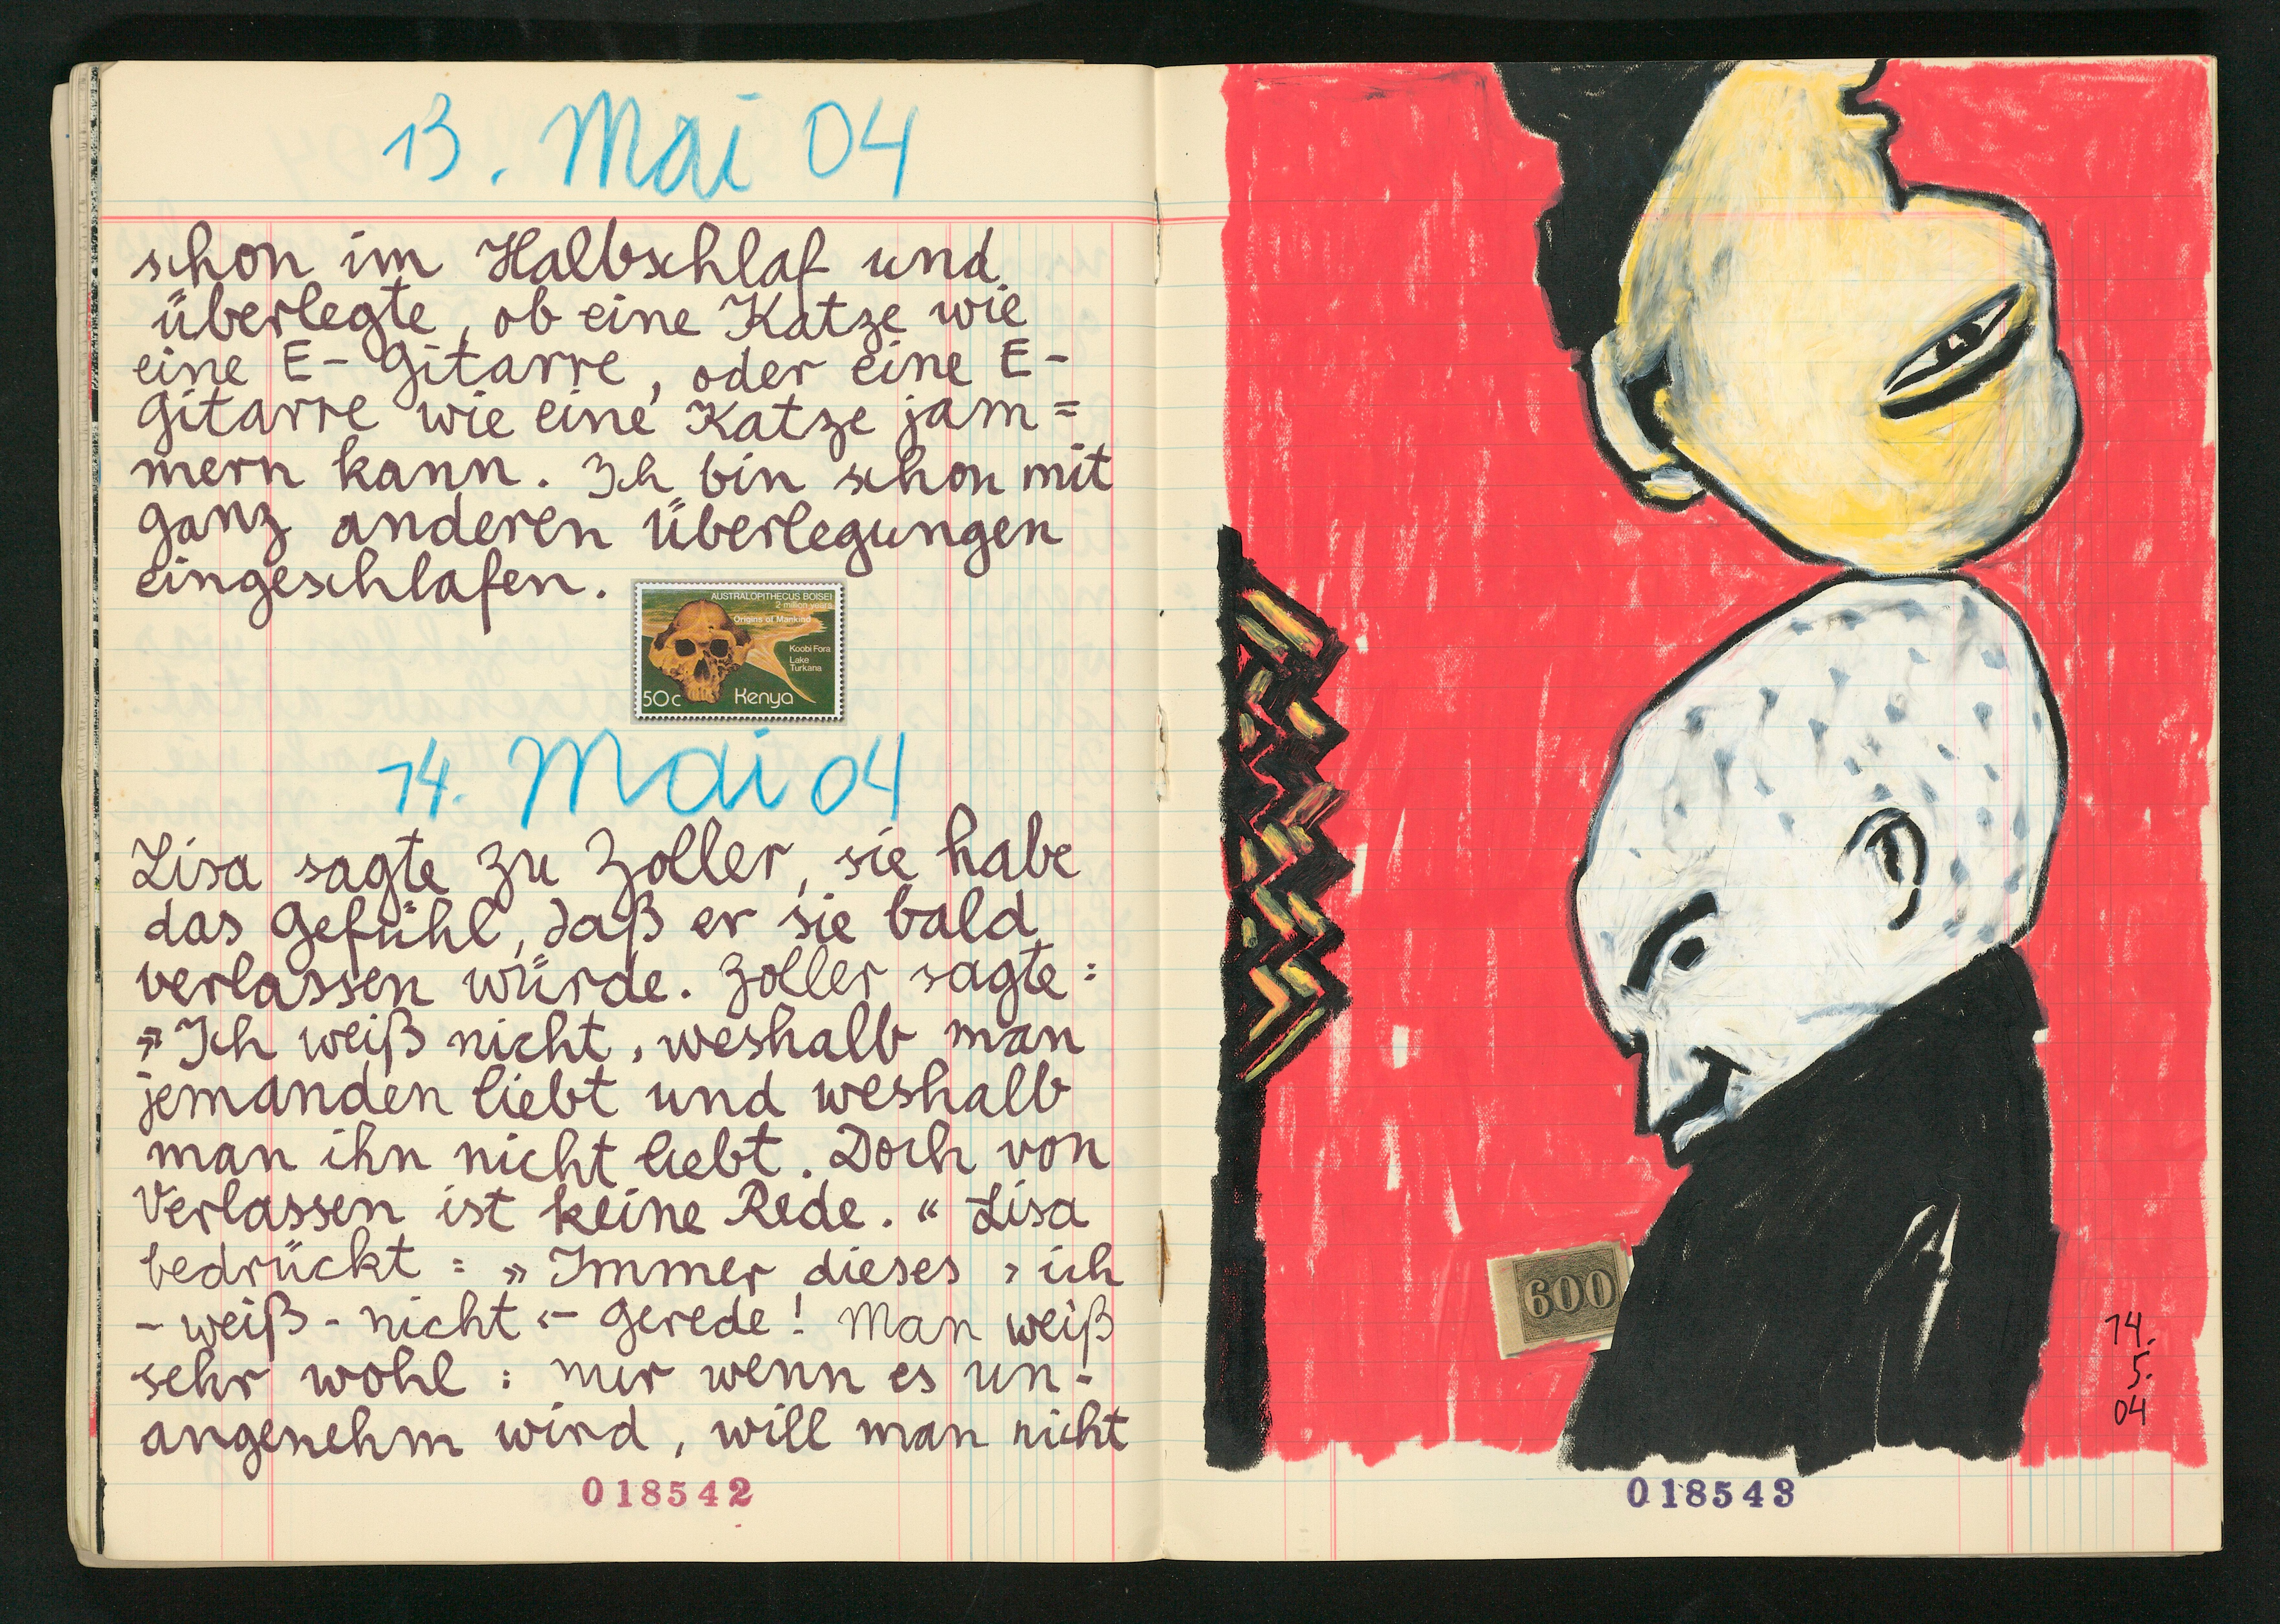 13. Mai 04
schon im Halbschlaf und
überlegte, ob eine Katze wie
eine E-Gitarre, oder eine E-
Gitarre wie eine Katze jam=
mern kann. Ich bin schon mit
ganz anderen Überlegungen
eingeschlafen.
AUSTRALOPITHECUS BOISEI
2 million years
Origins of Mankind
Koobi Fora
Lake
Turkana
50c Kenya
14. Mai 04
Lisa sagte zu Zoller, sie habe
das Gefühl, daß er sie bald
verlassen würde. Zoller sagte:
»Ich weiß nicht, weshalb man
jemanden liebt und weshalb
man ihn nicht liebt. Doch von
Verlassen ist keine Rede.« Lisa
bedrückt: »Immer dieses ›ich
-weiß-nicht‹-Gerede! Man weiß
sehr wohl: nur wenn es un-
angenehm wird, will man nicht
018542
600
14.
5.
04
018543